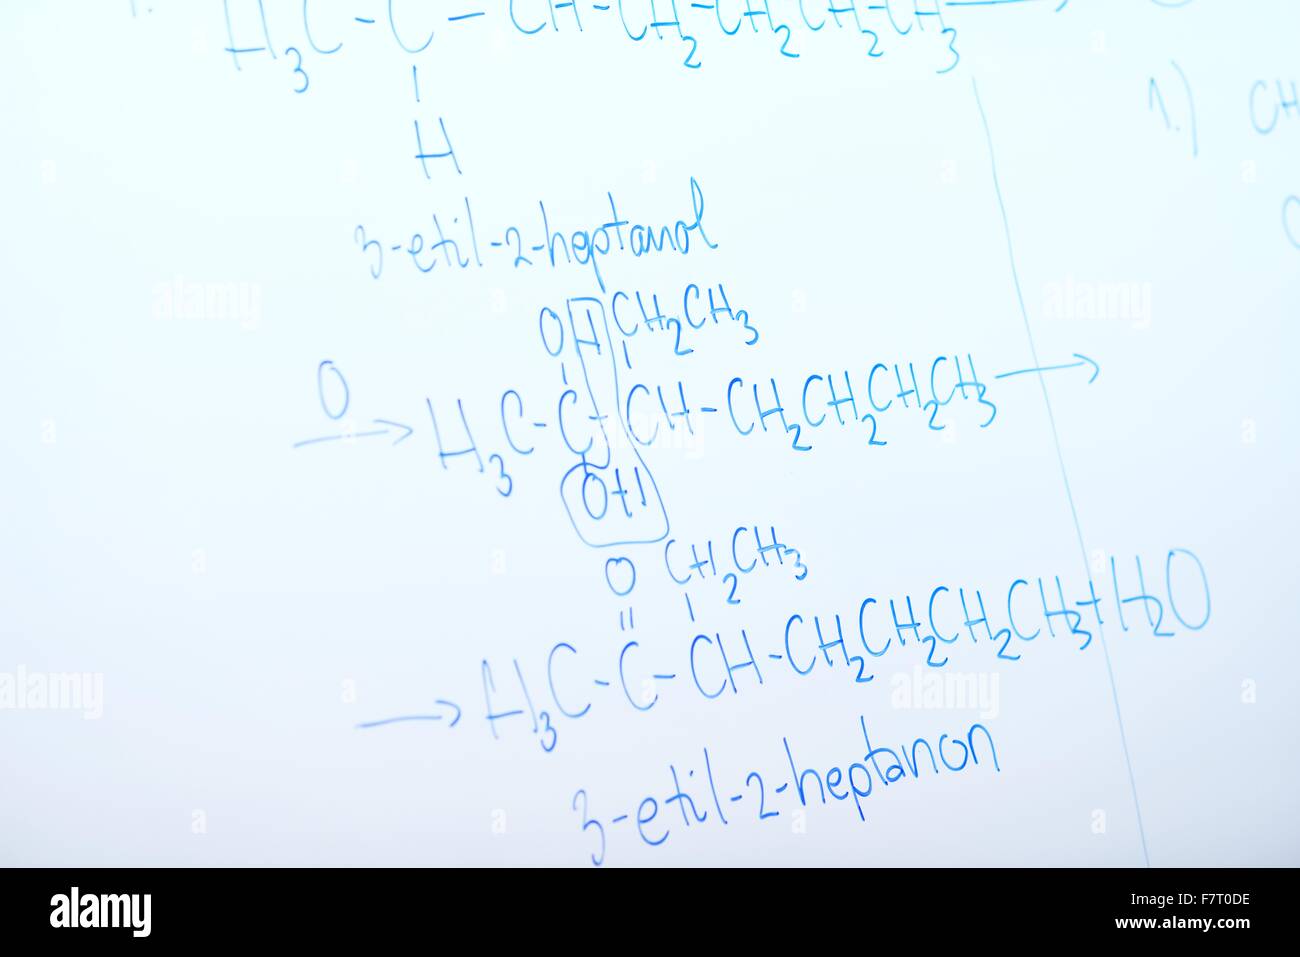 H₃C - C - CH - CH₂CH₂CH₂CH₃ →
H
3-etil-2-heptanol
1.) CH
OH CH₂CH₃
O → H₃C - C - CH - CH₂CH₂CH₂CH₃ →
OH
O CH₂CH₃
→ H₃C - C - CH - CH₂CH₂CH₂CH₃ + H₂O
3-etil-2-heptanon
alamy
Image ID: F7T0DE
www.alamy.com